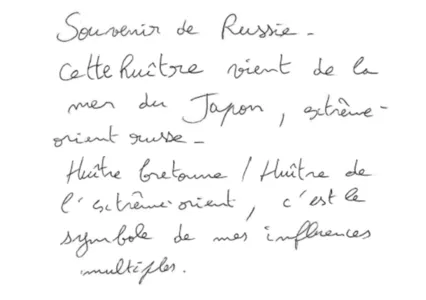 Souvenir de Russie -
Cette huître vient de la
mer du Japon, extrême-
orient russe -
Huître bretonne / Huître de
l'extrême-orient, c'est le
symbole de mes influences
multiples.